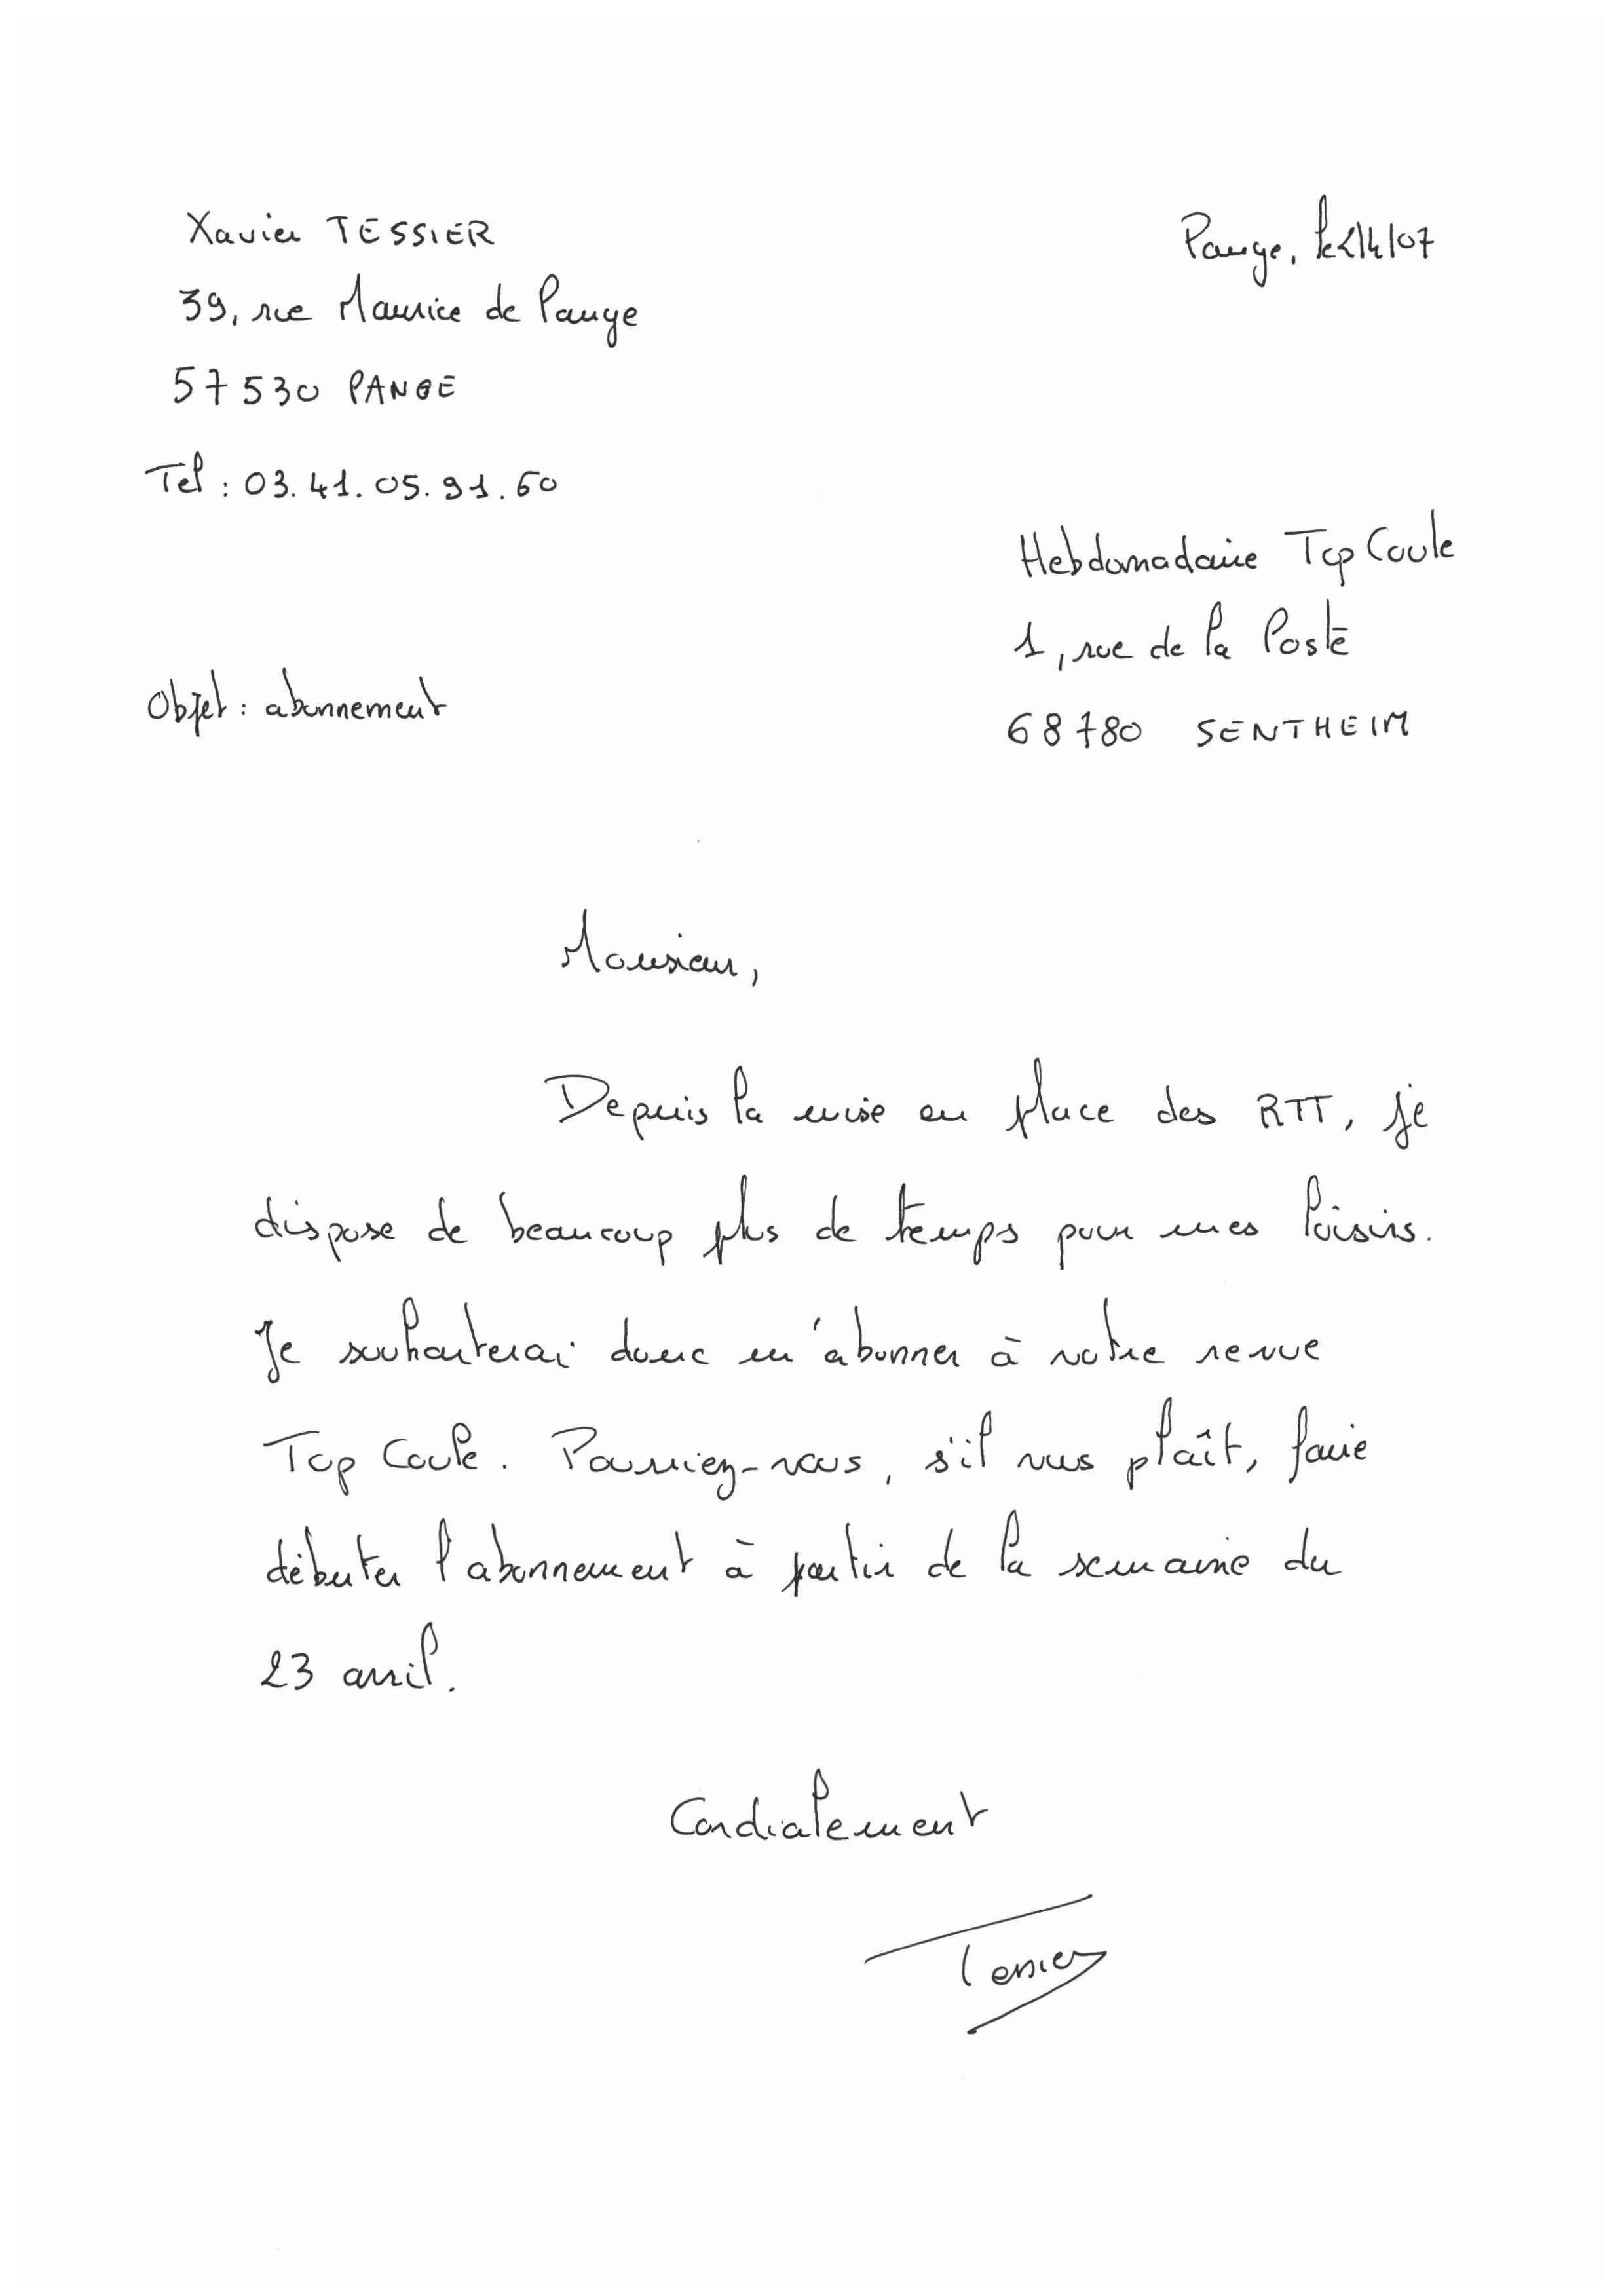 Xavier TESSIER
Pange, le 2/4/07
39, rue Maurice de Pange
57530 PANGE
Tel : 03.41.05.91.60
Hebdomadaire Top Coule
1, rue de la Poste
68780 SENTHEIM
Objet : abonnement
Monsieur,
Depuis la mise en place des RTT, je
dispose de beaucoup plus de temps pour mes loisirs.
Je souhaiterai donc m'abonner à votre revue
Top Coule. Pourriez-vous, s'il vous plaît, faire
débuter l'abonnement à partir de la semaine du
23 avril.
Cordialement
Tessier